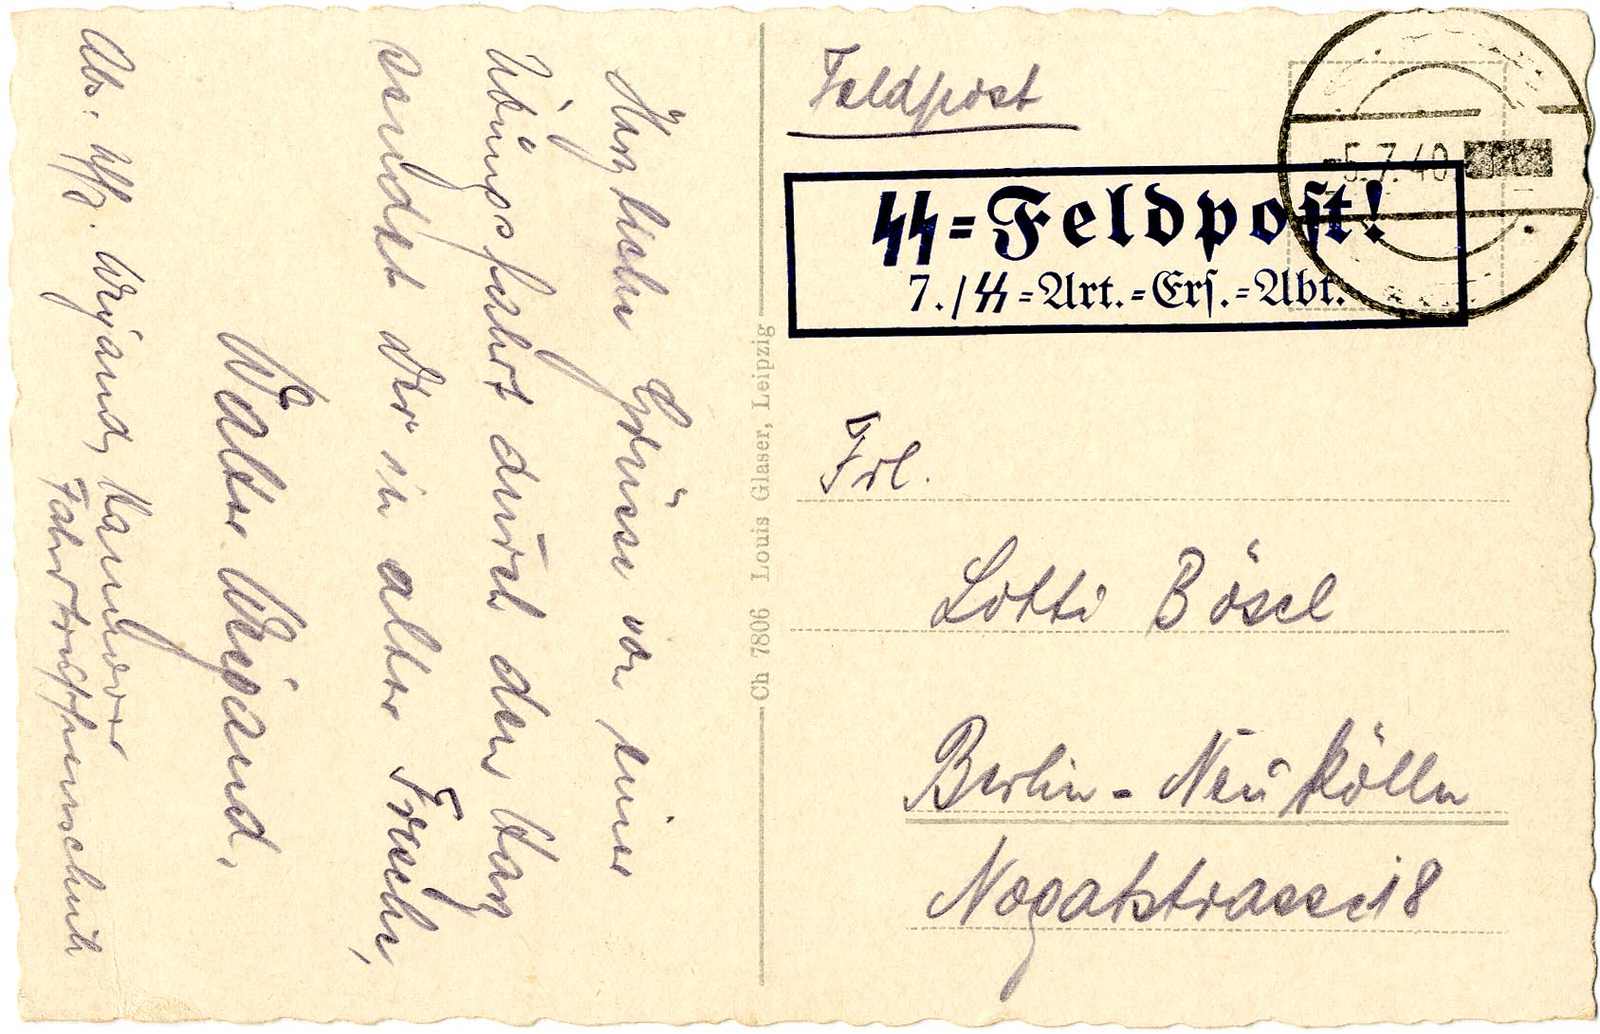 Herzliche Grüsse von einer
Übungsfahrt durch den Harz
sendet Dir in alter Frische,
Walter Weigand.
Abs. Uffz. Weigand, Hannover
Fahrtruppenschule
Ch 7806 Louis Glaser, Leipzig
Feldpost
-5.7.40
SS=Feldpost!
7./SS=Art.=Ers.=Abt.
Frl.
Lotti Bösel
Berlin-Neukölln
Nogatstrasse 18